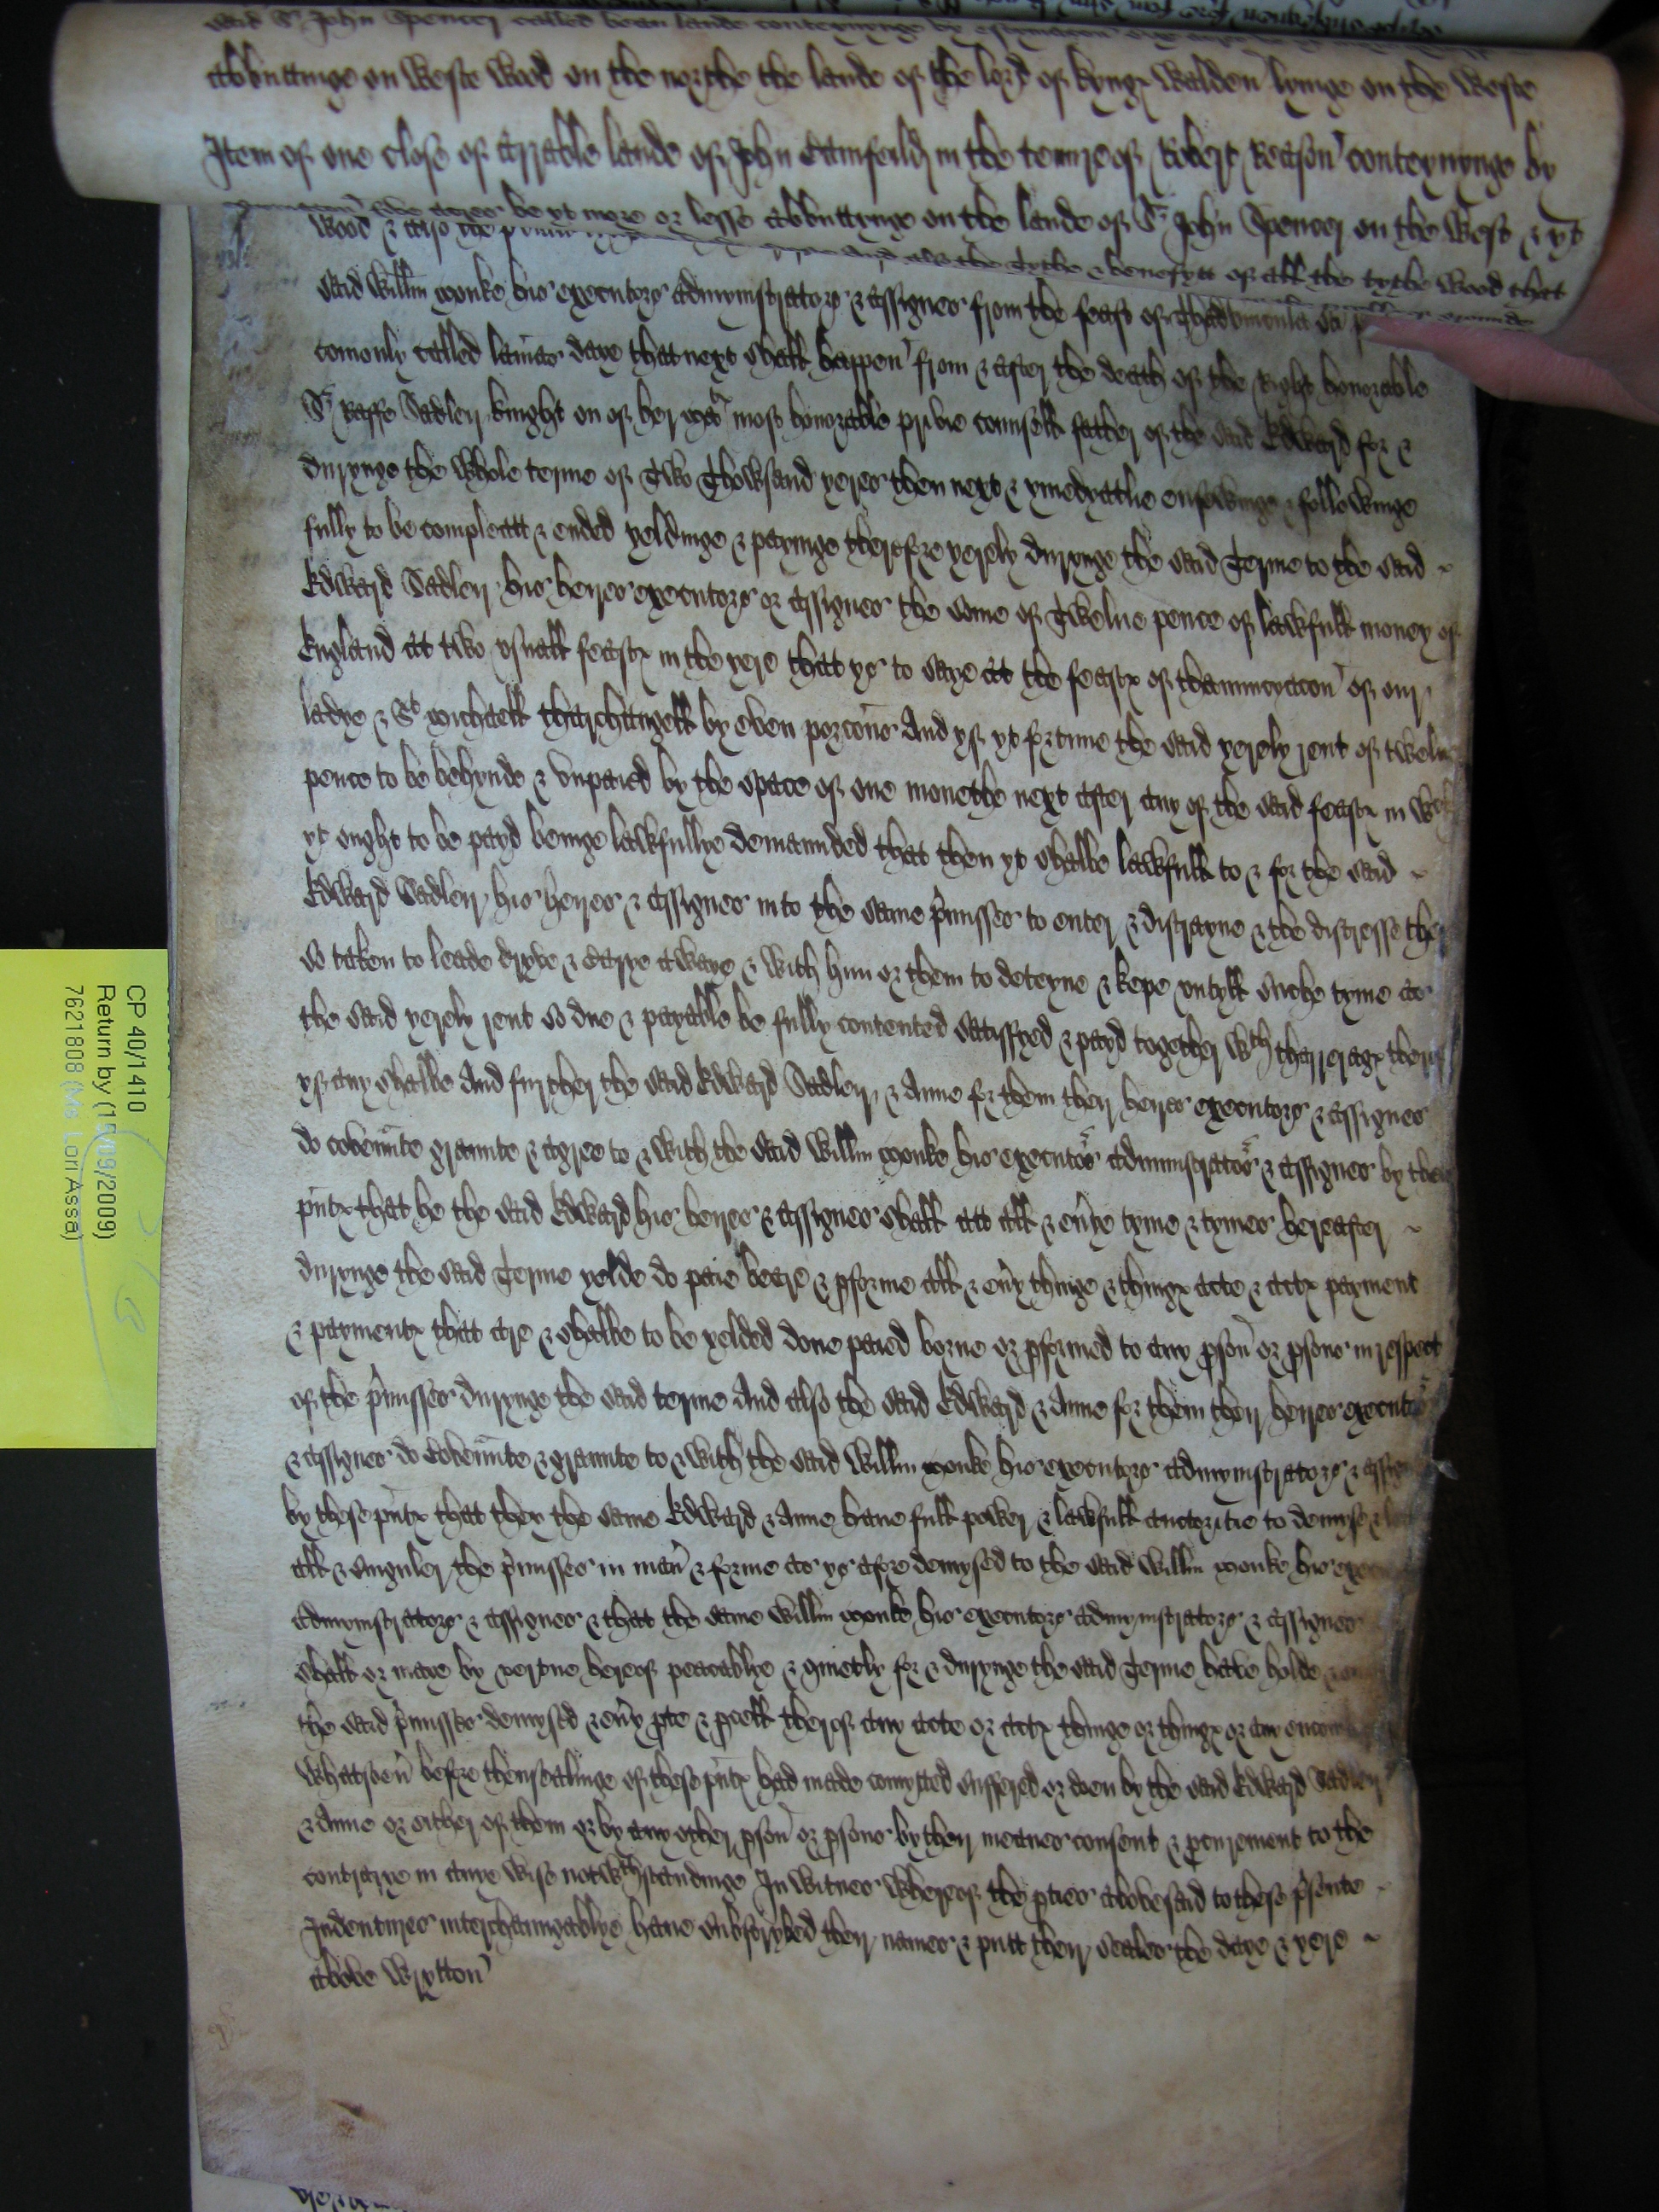 said Sr John Spencer called bean lande conteynynge by estymacon
abbuttinge on Weste Wood on the northe the lande of the lord of kyngx Walden lyinge on the weste
Item of one close of arrable lande of John Camfeild in the tenure of Robert Reason conteynynge by
acres be yt more or lesse abbuttynge on the lande of Sr John Spencer on the West & yt
and also the Tythe & benefytt of all the tythe Wood that
Wood & also the
said Willm Monke his executors admynistrators & assignes from the feast of Thadvincula
comonly called lam̄as daye that next shall happen from & after the death of the Right honorable
Sr Raffe Sadleir knight on of her mats most honorable privie counsell father of the said Edward for &
durynge the Whole terme of Two Thowsand yeres then next & ymedyatlie ensewinge & followinge
fully to be compleatt & ended yeldinge & payinge therefore yerely durynge the said Terme to the said
Edward Sadleir his heires executors or assignes the some of Twelue pence of lawfull money of
England att two usuall feastx in the yere that ys to saye att the feastx of thannucyacon of our
ladye & St Michaell tharchangell by even porcons And yf yt fortune the said yerely rent of twelue
pence to be behynde & vnpaied by the space of one monethe next after any of the said feastx in wch
yt ought to be payd beinge lawfullye demaunded that then yt shalbe lawfull to & for the said
Edward Sadleir his heires & assignes into the same p̄misses to enter & distrayne & the distresse ther
so taken to leade dryve & carye awaye & with him or them to deteyne & kepe untyll suche tyme as
the said yerely rent so due & payable be fully contented satisfyed & payd together wth tharreragx therof
yf any shalbe And further the said Edward Sadleir & Anne for them their heires executors & assignes
do covenūte graunte & agree to & with the said Willm Monke his executors administrators & assignes by thes
p̄ntx that he the said Edward his heires & assignes shall att all & ev̄ye tyme & tymes hereafter
durynge the said Terme yelde do paie beare & pforme all & ev̄y thinge & thingx acte & actx payment
& paymentx that are & shalbe to be yelded done paied borne or pformed to any pson or psons in respect
of the p̄misses durynge the said terme And also the said Edward & Anne for them their heires executors
& assignes do Covenūte & graunte to & with the said Willm Monke his executors admynistrators & assignes
by these p̄ntx that they the same Edward & Anne haue full power & lawfull auctoritie to demyse & lett
all & singuler the p̄misses in man̄ & forme as ys afore demysed to the said Willm Monke his
admynistrators & assignes & that the same Willm Monke his executors admynistrators & assignes
shall or maye by vertue hereof peacablye & quietly for & durynge the said Terme have holde
the said p̄misses demysed & ev̄y pte & pcell therof any acte or actx thinge or thingx or any
Whatsoev̄ before thensealinge of these p̄ntx had made comytted suffered or doen by the said Edward Sadleir
& Anne or either of them or by any other pson or psons by their meanes consent & pcurement to the
contrarye in anye wise notwthstandinge In witnes Whereof the pties abovesaid to these p̄sente
Indentures interchaungablye haue subscrybed their names & putt their seales the daye & yere
above Wrytton
CP 40/1410
Return by (15/09/2009)
7621808 (Ms Lori Assa)